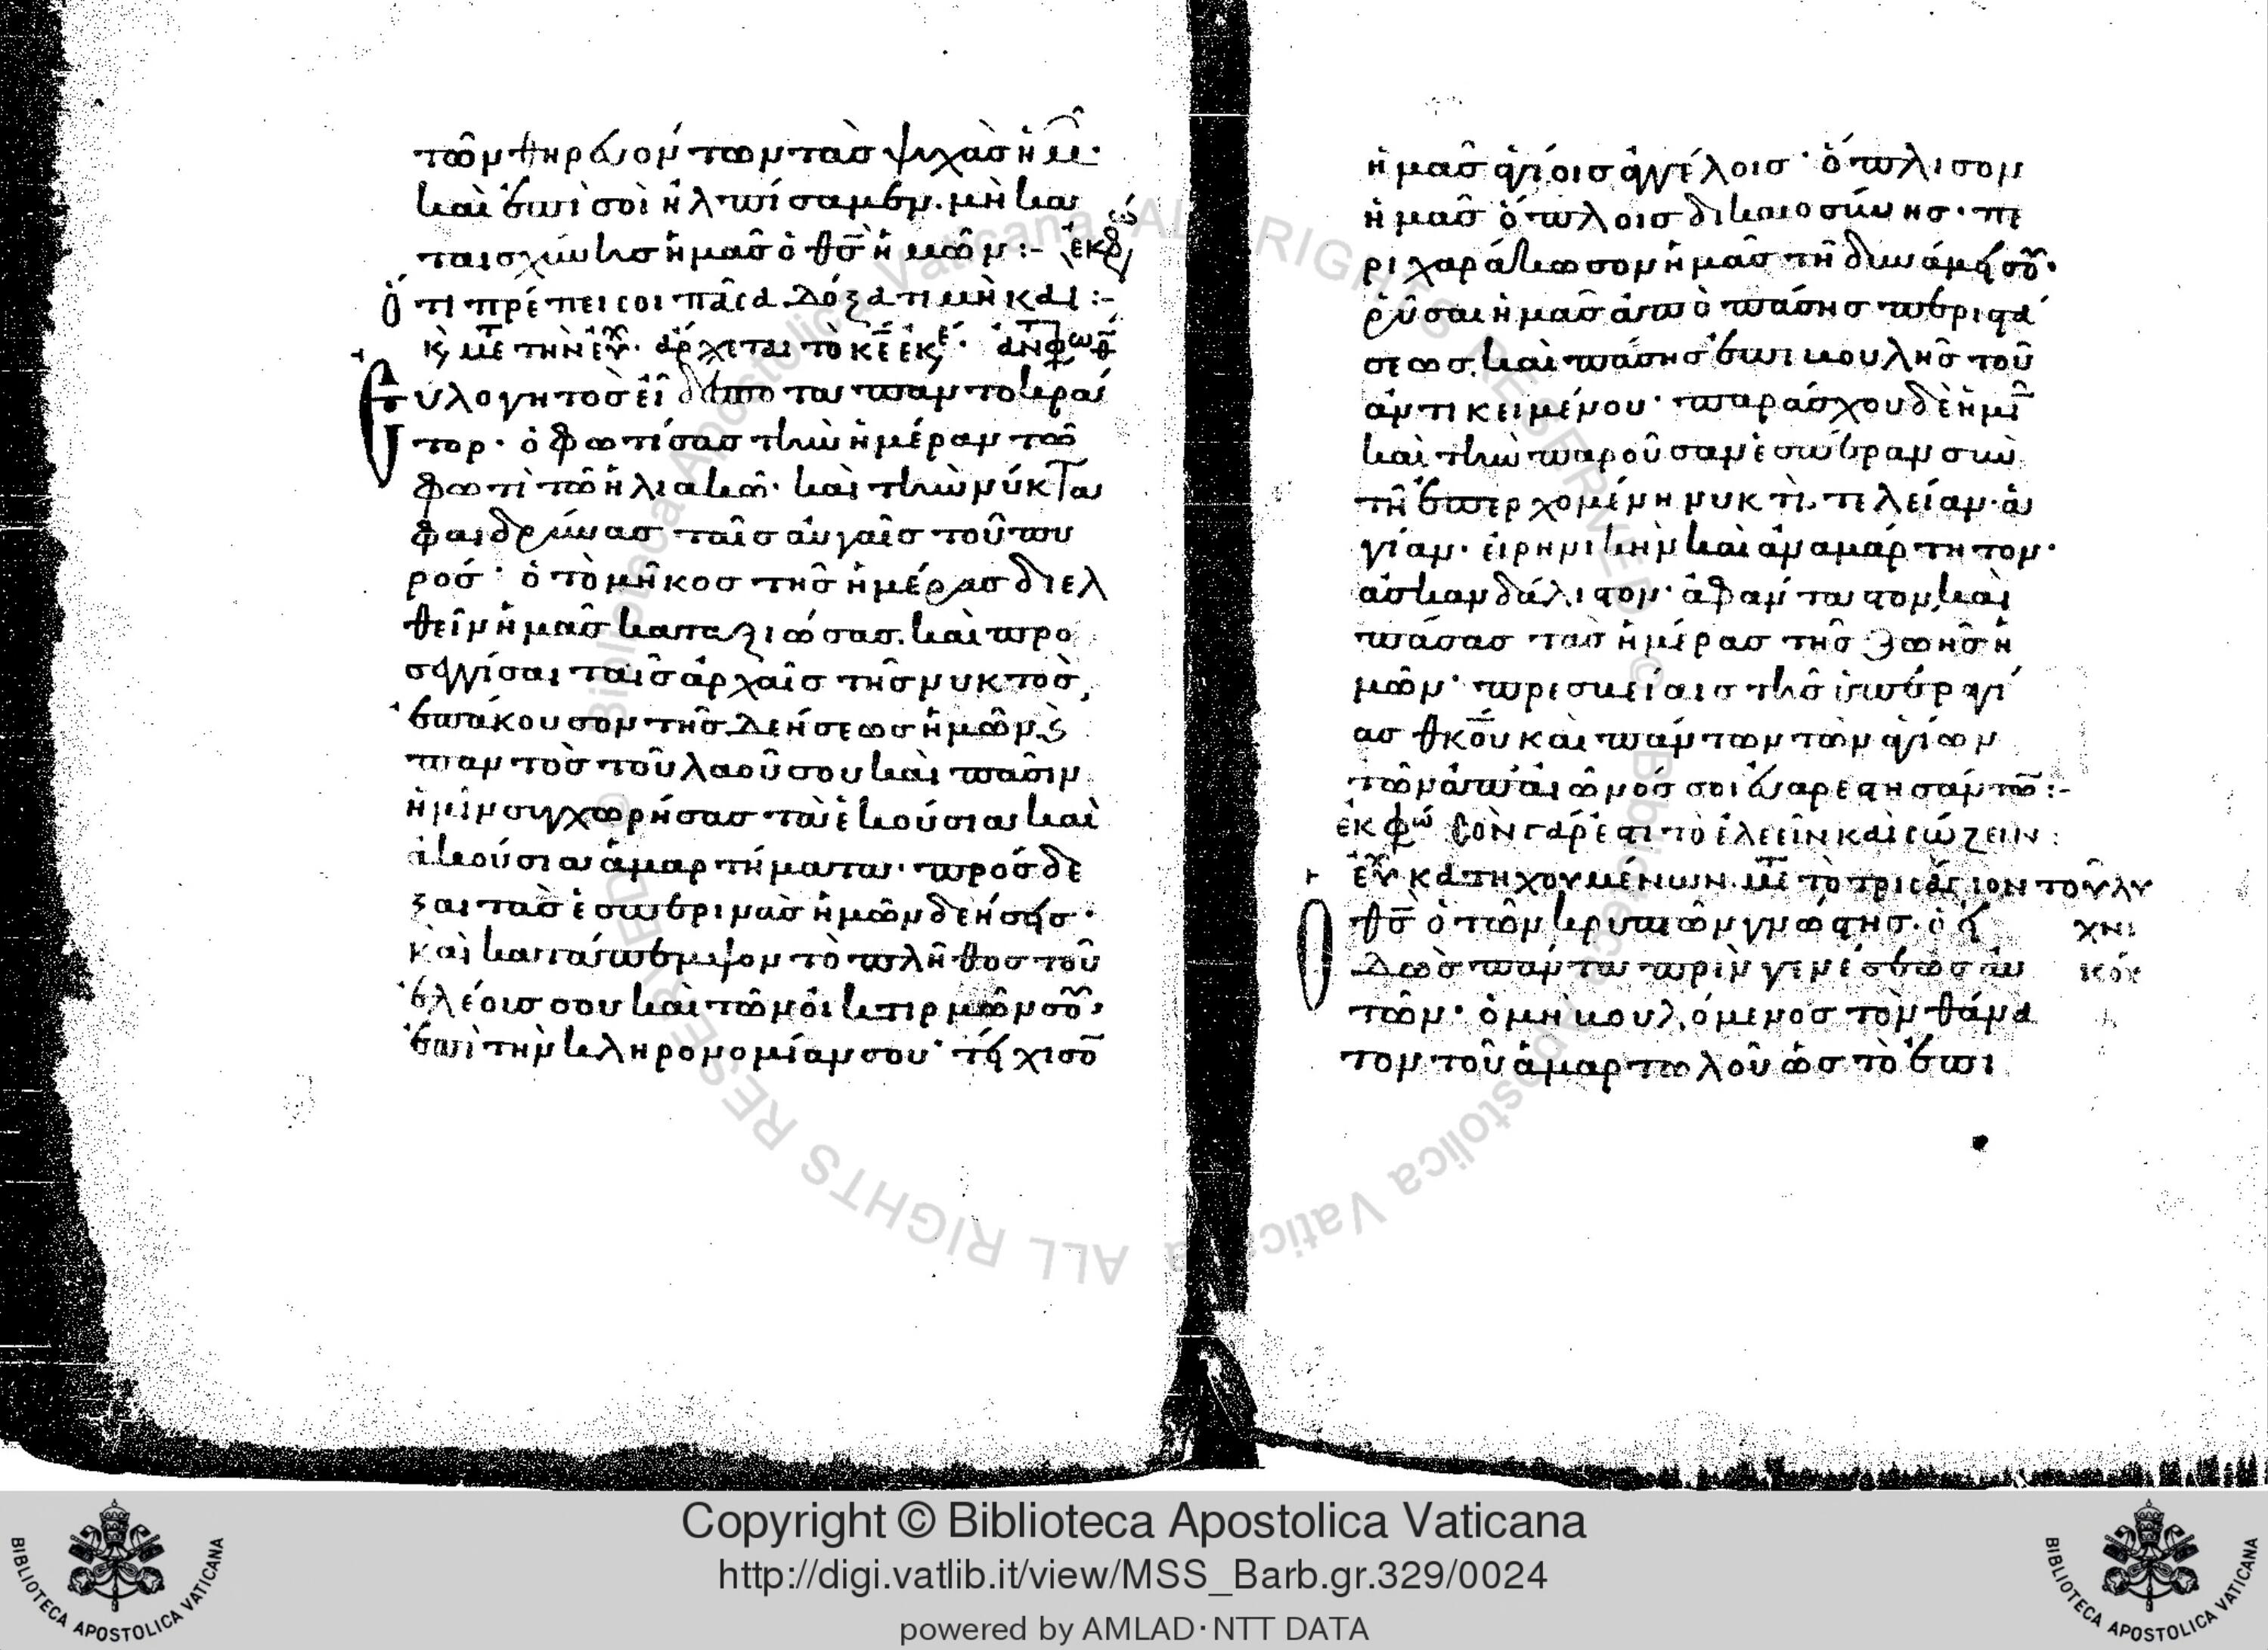 τῶν θηρευόντων τὰσ ψυχὰσ ἡμ̑·
καὶ ἐπὶ σοὶ ἠλπίσαμεν. μὴ κα
ταισχύνῃσ ἡμᾶσ ὁ θσ̅ ἡμῶν :- ἐκφώ
ὅτι πρέπει σοι πᾶσα δόξα τιμὴ και :-
εὐλογητὸσ εἶ δέσποτα παντοκρά
τορ· ὁ φωτίσασ τὴν ἡμέραν τῶ
φωτὶ τῶ ἡλιακῶ· καὶ τὴν νύκτα
φαιδρύνασ ταῖσ αὐγαῖσ τοῦ πυ
ρόσ· ὁ τὸ μῆκοσ τῆσ ἡμέρασ διελ
θεῖν ἡμᾶσ καταξιώσασ. καὶ προ
σεγγίσαι ταῖσ ἀρχαῖσ τῆσ νυκτὸσ,
ἐπάκουσον τῆσ δεήσεωσ ἡμῶν ϗ
παντὸσ τοῦ λαοῦ σου καὶ πᾶσιν
ἡμῖν συγχωρήσασ τὰ ἑκούσια καὶ
ἀκούσια ἁμαρτήματα· πρόσδε
ξαι τὰσ ἑσπερινὰσ ἡμῶν δεήσεισ·
καὶ κατάπεμψον τὸ πλῆθοσ τοῦ
ἐλέουσ σου καὶ τῶν οἰκτιρμῶν σοῦ,
ἐπὶ τὴν κληρονομίαν σου· τείχισο̅
ἡμᾶσ ἁγίοισ ἀγγέλοισ· ὅπλισον
ἡμᾶσ ὅπλοισ δικαιοσύνησ· πε
ριχαράκωσον ἡμᾶσ τῆ δυνάμει σου·
ῥῦσαι ἡμᾶσ ἀπὸ πάσησ περιστά
σεωσ. καὶ πάσησ ἐπιβουλῆσ τοῦ
ἀντικειμένου· παράσχου δὲ ἡμῖ̅
καὶ τὴν παροῦσαν ἑσπέραν σὺν
τῆ ἐπερχομένη νυκτὶ. τελείαν· ἁ
γίαν· εἰρηνικὴν καὶ ἀναμάρτητον·
ἀσκανδάλιστον· ἀφάνταστον, καὶ
πάσασ τὰσ ἡμέρασ τῆσ ζωῆσ ἡ
μῶν· πρεσβείαισ τῆσ ὑπεραγί
ασ θκου̅ καὶ πάντων τῶν ἁγίων
τῶν ἀπ' αἰῶνόσ σοι εὐαρεστησάντω̅ :-
ἐκφώ σὸν γάρ ἐστι τὸ ἐλεεῖν καὶ σώζειν :
εὐχ κατηχουμένων. μετ τὸ τρισάγιον τοῦ λυ
χνι
κόυ
ὁ θσ̅ ὁ τῶν κρυπτῶν γνώστησ. ὁ εἰ
δὼσ πάντα πρὶν γενέσεωσ αὐ
τῶν· ὁ μὴ βουλόμενοσ τὸν θάνα
τον τοῦ ἁμαρτωλοῦ ὡσ τὸ ἐπι
Copyright © Biblioteca Apostolica Vaticana
http://digi.vatlib.it/view/MSS_Barb.gr.329/0024
powered by AMLAD·NTT DATA
BIBLIOTECA APOSTOLICA VATICANA
BIBLIOTECA APOSTOLICA VATICANA